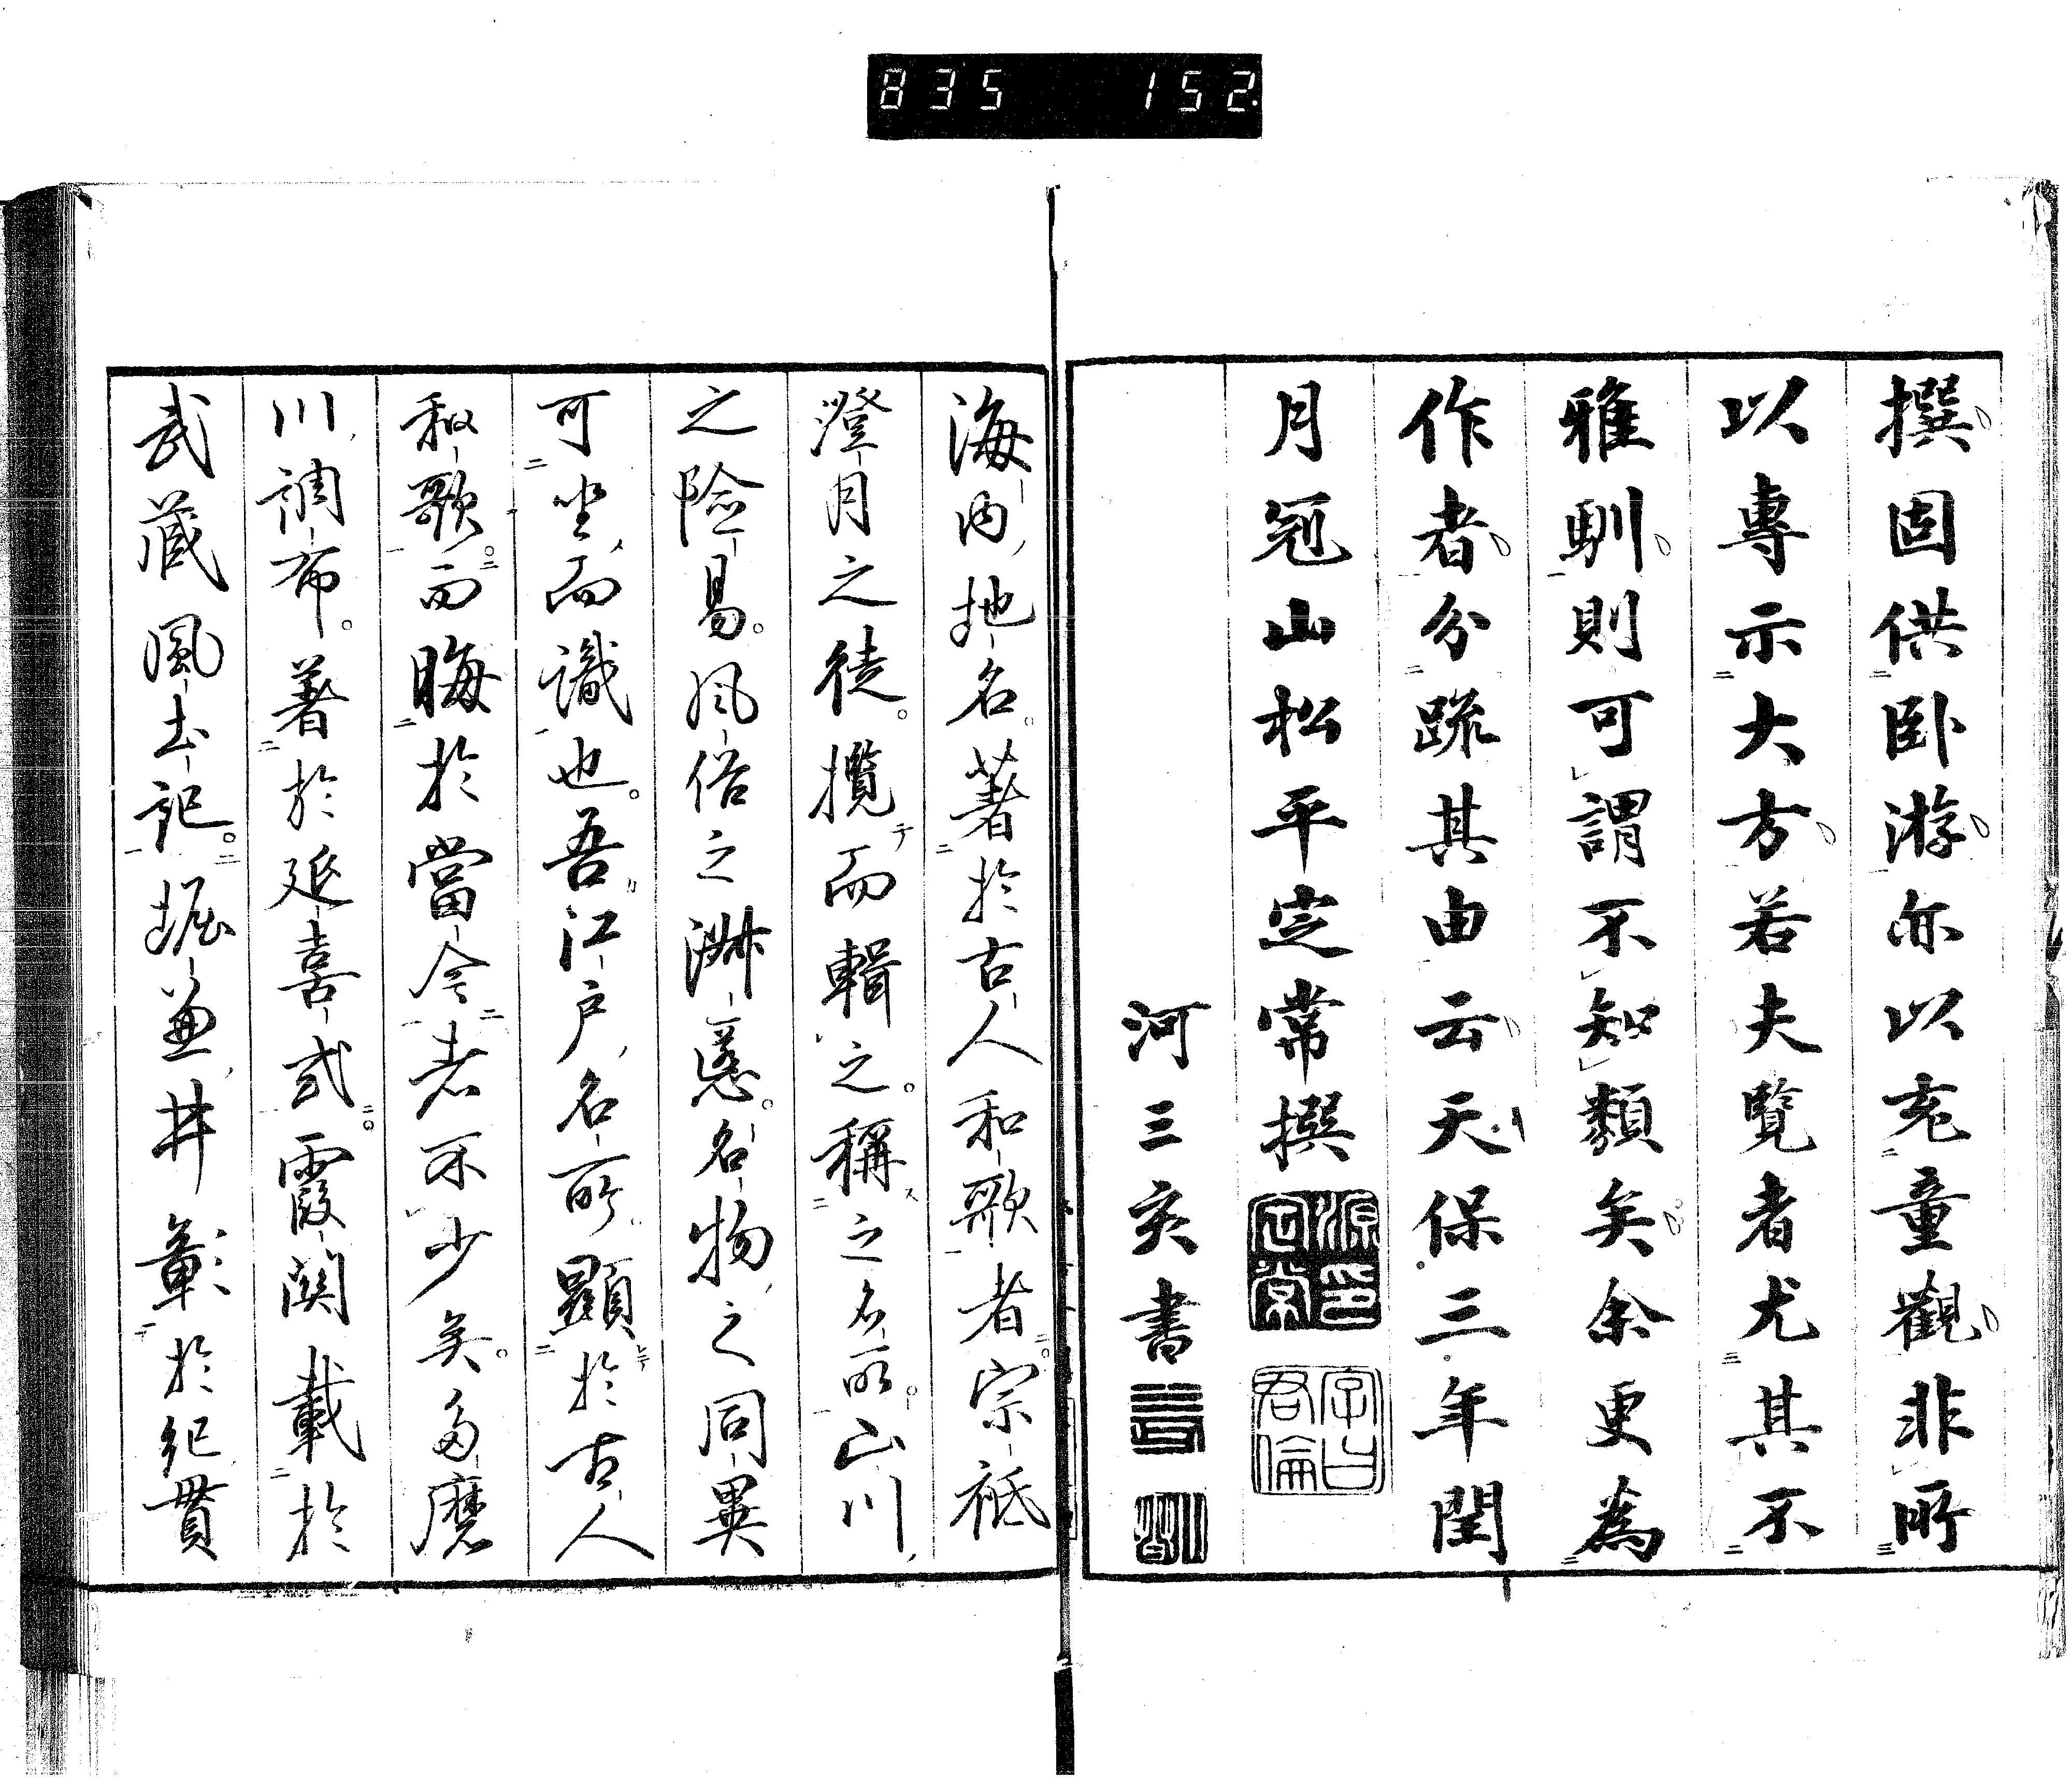 835 152
撰固供卧游亦以充童觀非所
以專示大方若夫覽者尤其不
雅馴則可謂不知類矣余更為
作者分疏其由云天保三年閏
月冠山松平定常撰
源定常印
字曰君倫
河三亥書
三亥
海内地名著於古人和歌者宗祗
澄月之徒攬而輯之稱之名所山川
之險易風俗之淋慝名物之同異
可坐而識也吾江戸名所顯於古人
和歌而晦於當今者不少矣多麿
川調布著於延喜式霞関載於
武蔵風土記堀兼井彰於紀貫